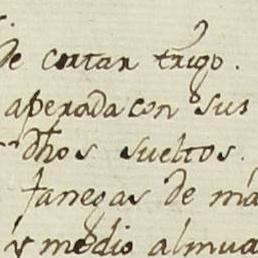 De cortar trigo.
aperada con sus
dhos sueltos.
fanegas de ma
y medio almua